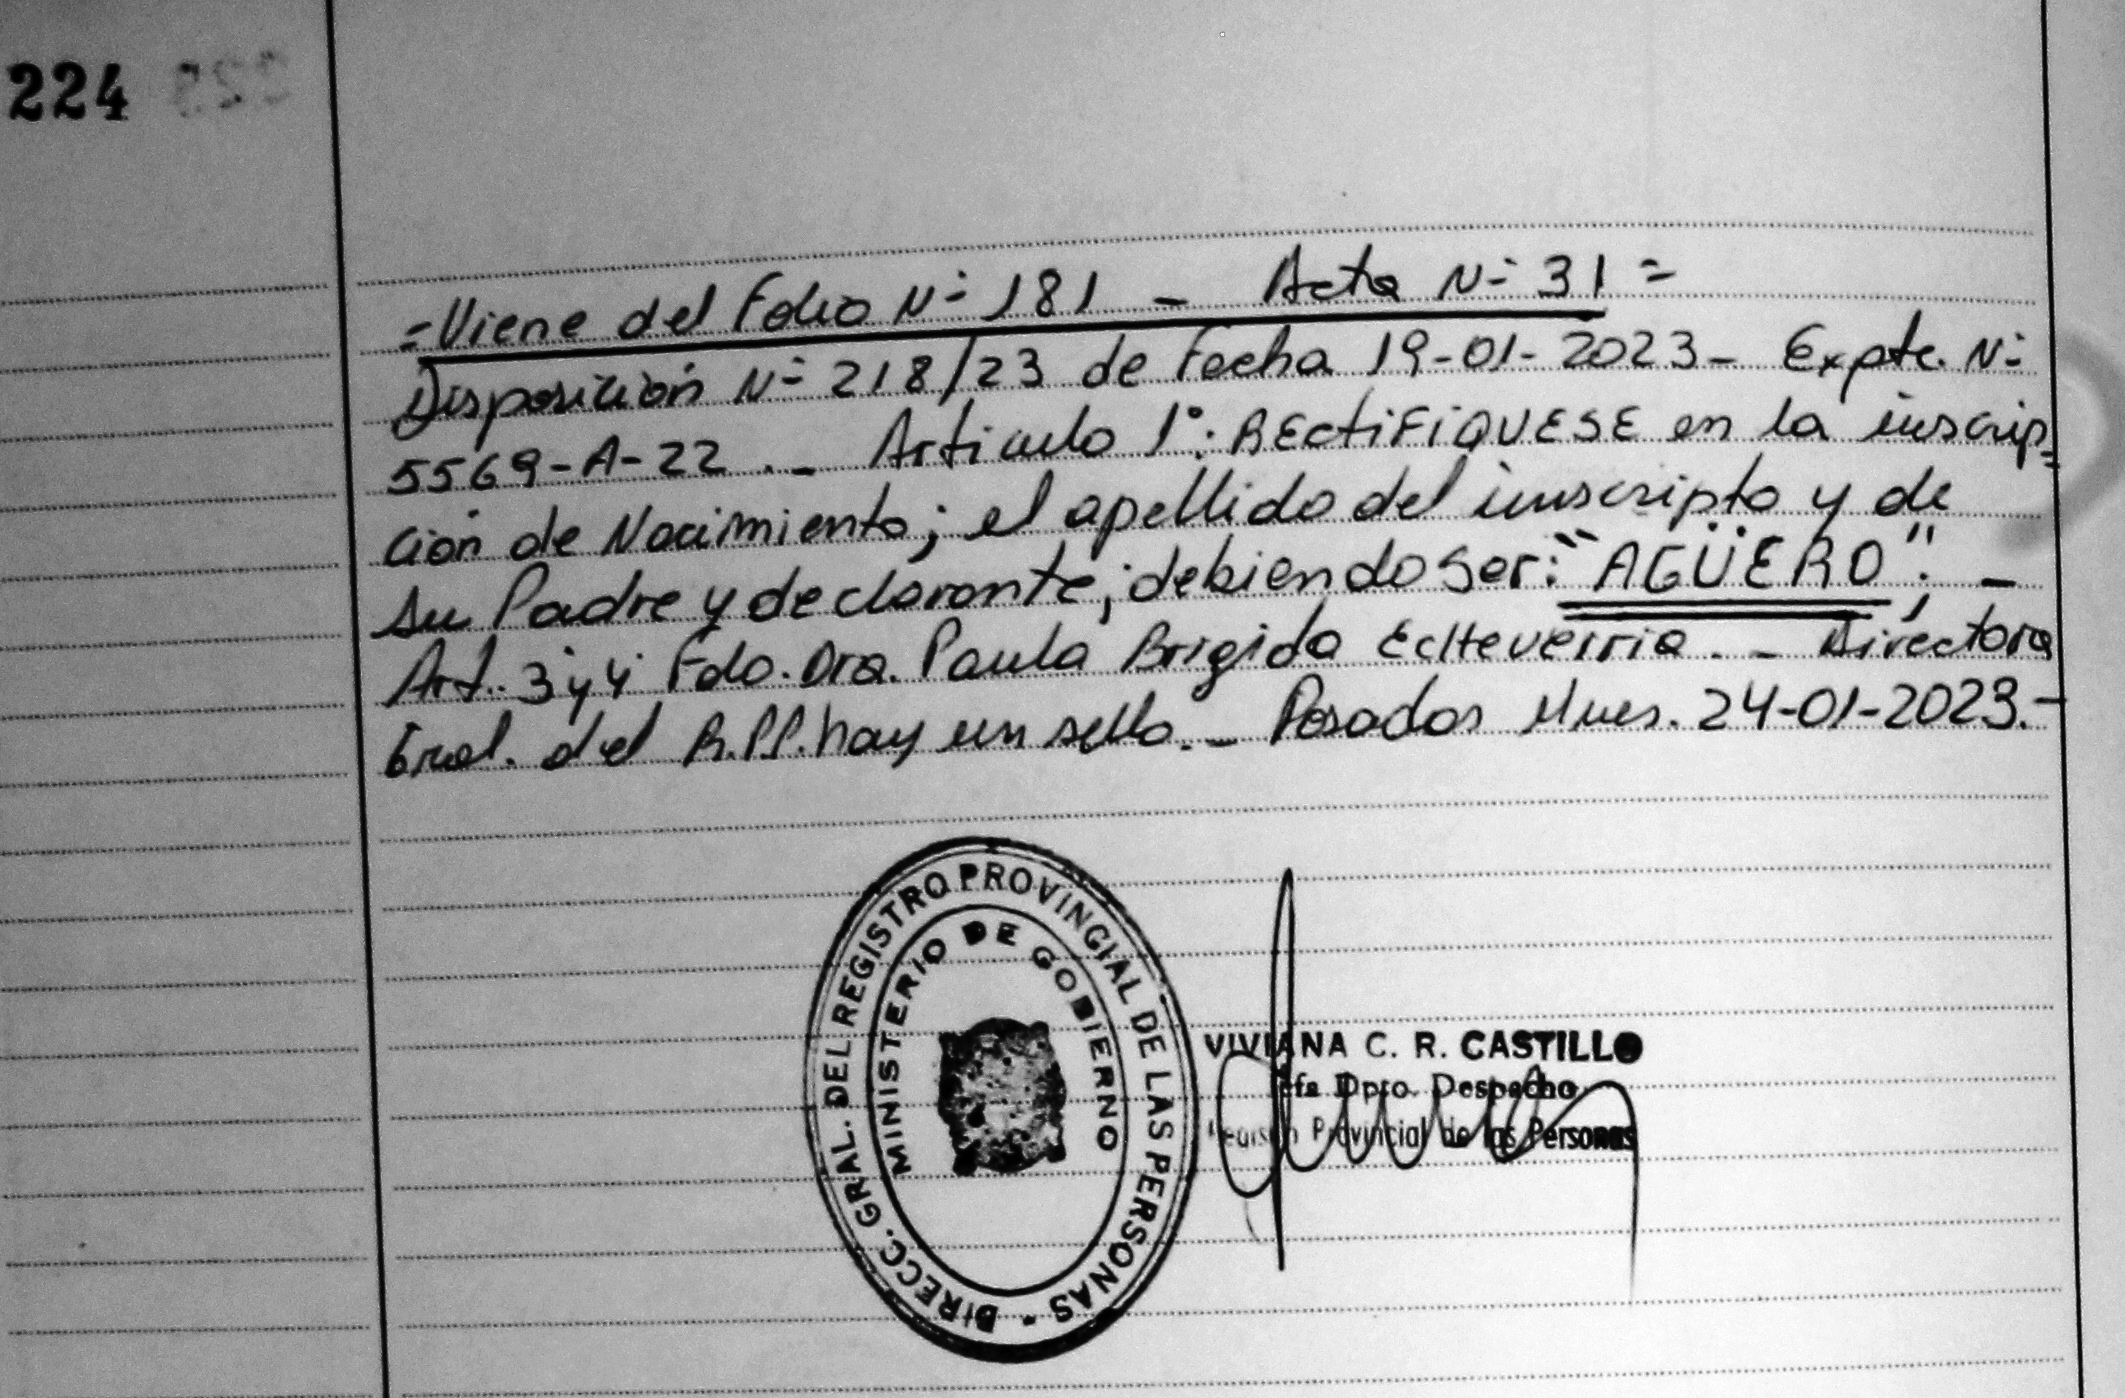 224
=Viene del Folio Nº 181 - Acta Nº 31=
Disposición Nº 218/23 de Fecha 19-01-2023- Expte. Nº
5569-A-22 ._ Articulo 1°: RECTIFIQUESE en la inscrip=
ción de Nacimiento; el apellido del inscripto y de
su Padre y declarante; debiendo ser: "AGÜERO"; _
Art. 3º y 4º Fdo. Dra. Paula Brigida ECHTEVERRIA ._ Directora
Gral. del R.P.P. hay un sello._ Posadas Mnes. 24-01-2023.-
DIRECC. GRAL. DEL REGISTRO PROVINCIAL DE LAS PERSONAS -
MINISTERIO DE GOBIERNO
VIVIANA C. R. CASTILLO
Jefa Dpto. Despacho
Registro Provincial de las Personas